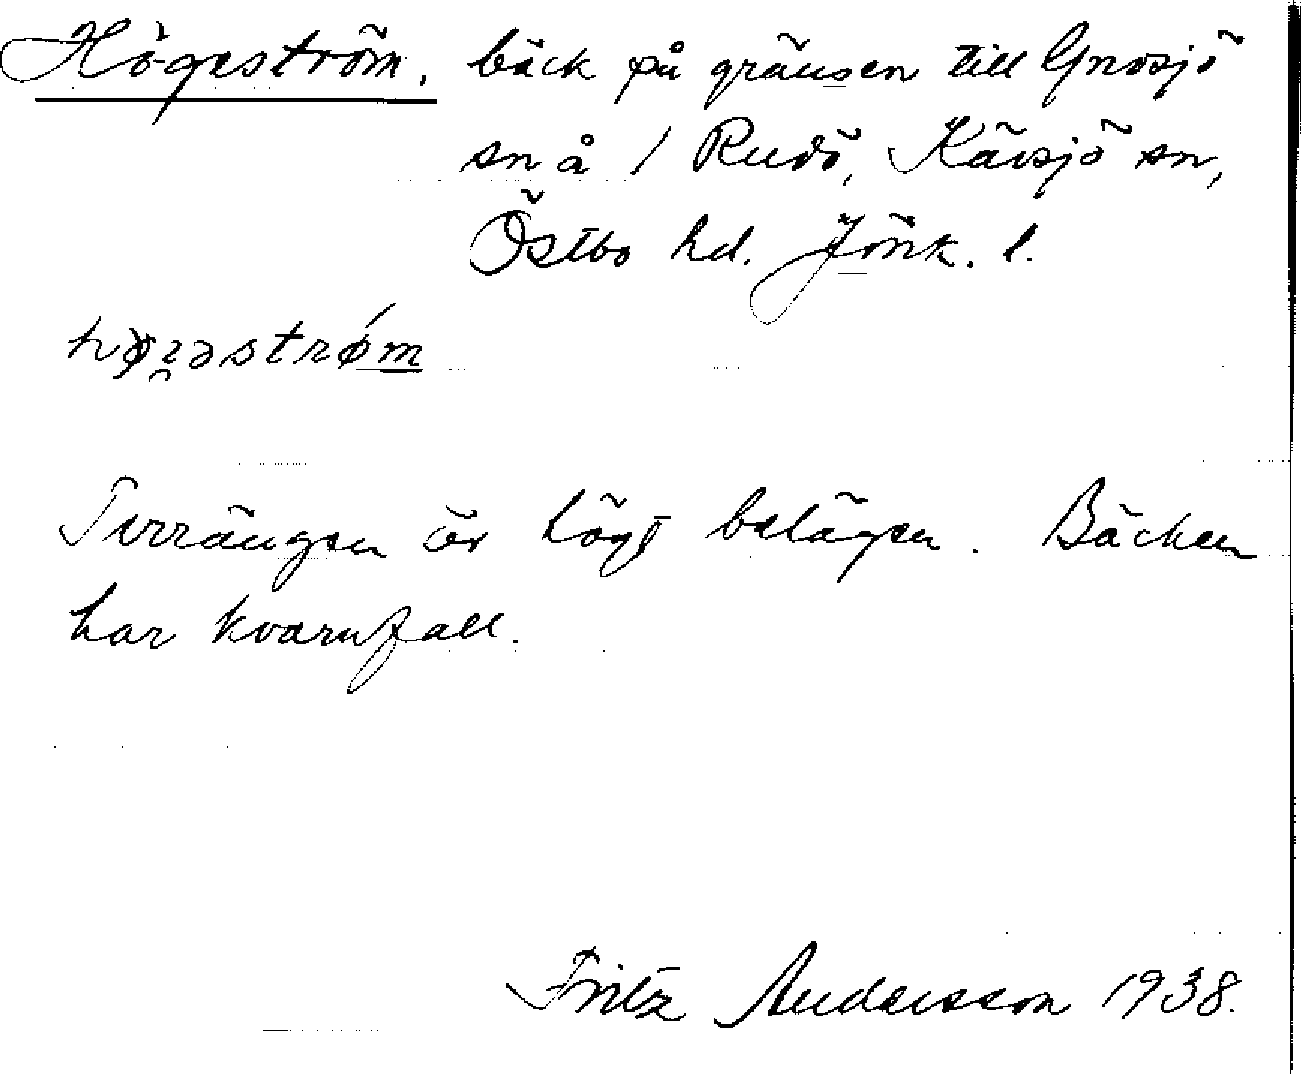 Högeström, bäck på gränsen till Gnosjö
sn å / Rudö, Kävsjö sn,
Östbo hd. Jönk. l.
Terrängen är högt belägen. Bäcken
har kvarnfall.
Fritz Andersson 1938.